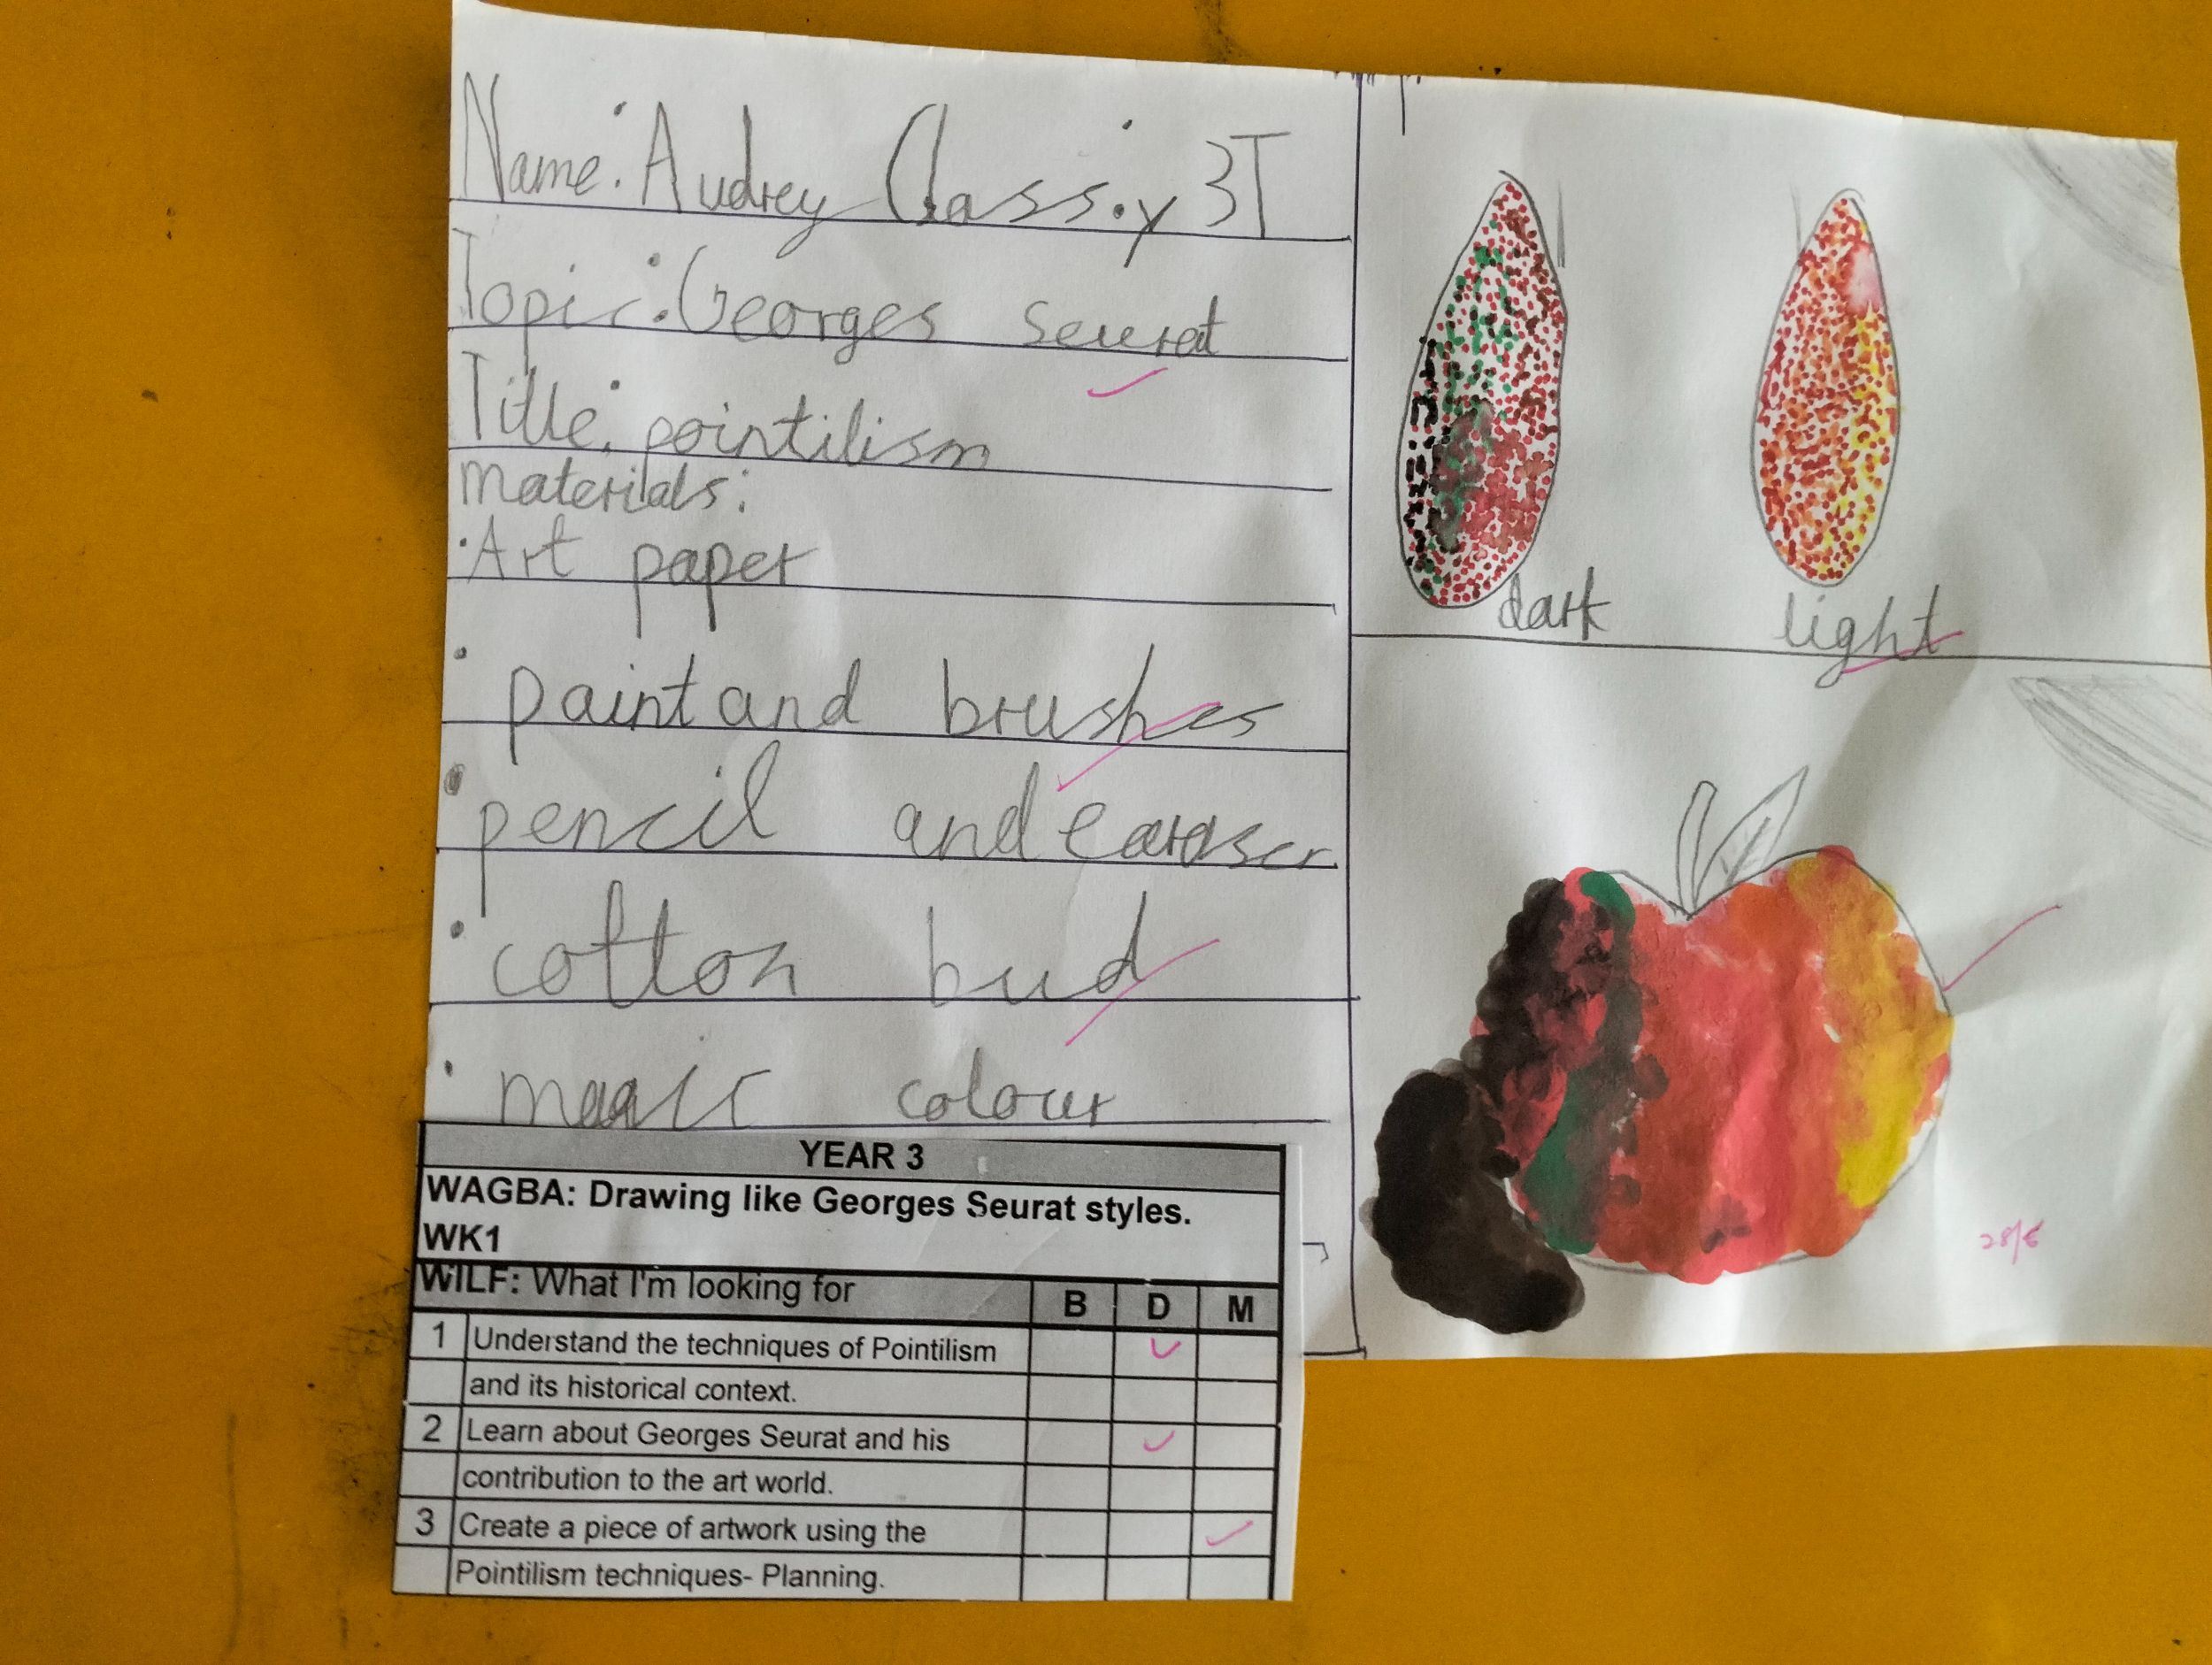 Name: Audrey Class: y 3T
Topic: Georges seurat
Title: pointilism
materilals:
• Art paper
• paint and brushes
• pencil and earaser
• cotton bud
• colour
YEAR 3
WAGBA: Drawing like Georges Seurat styles.
WK1
WILF: What I'm looking for B D M
1 Understand the techniques of Pointilism
and its historical context.
2 Learn about Georges Seurat and his
contribution to the art world.
3 Create a piece of artwork using the
Pointilism techniques- Planning.
dark light